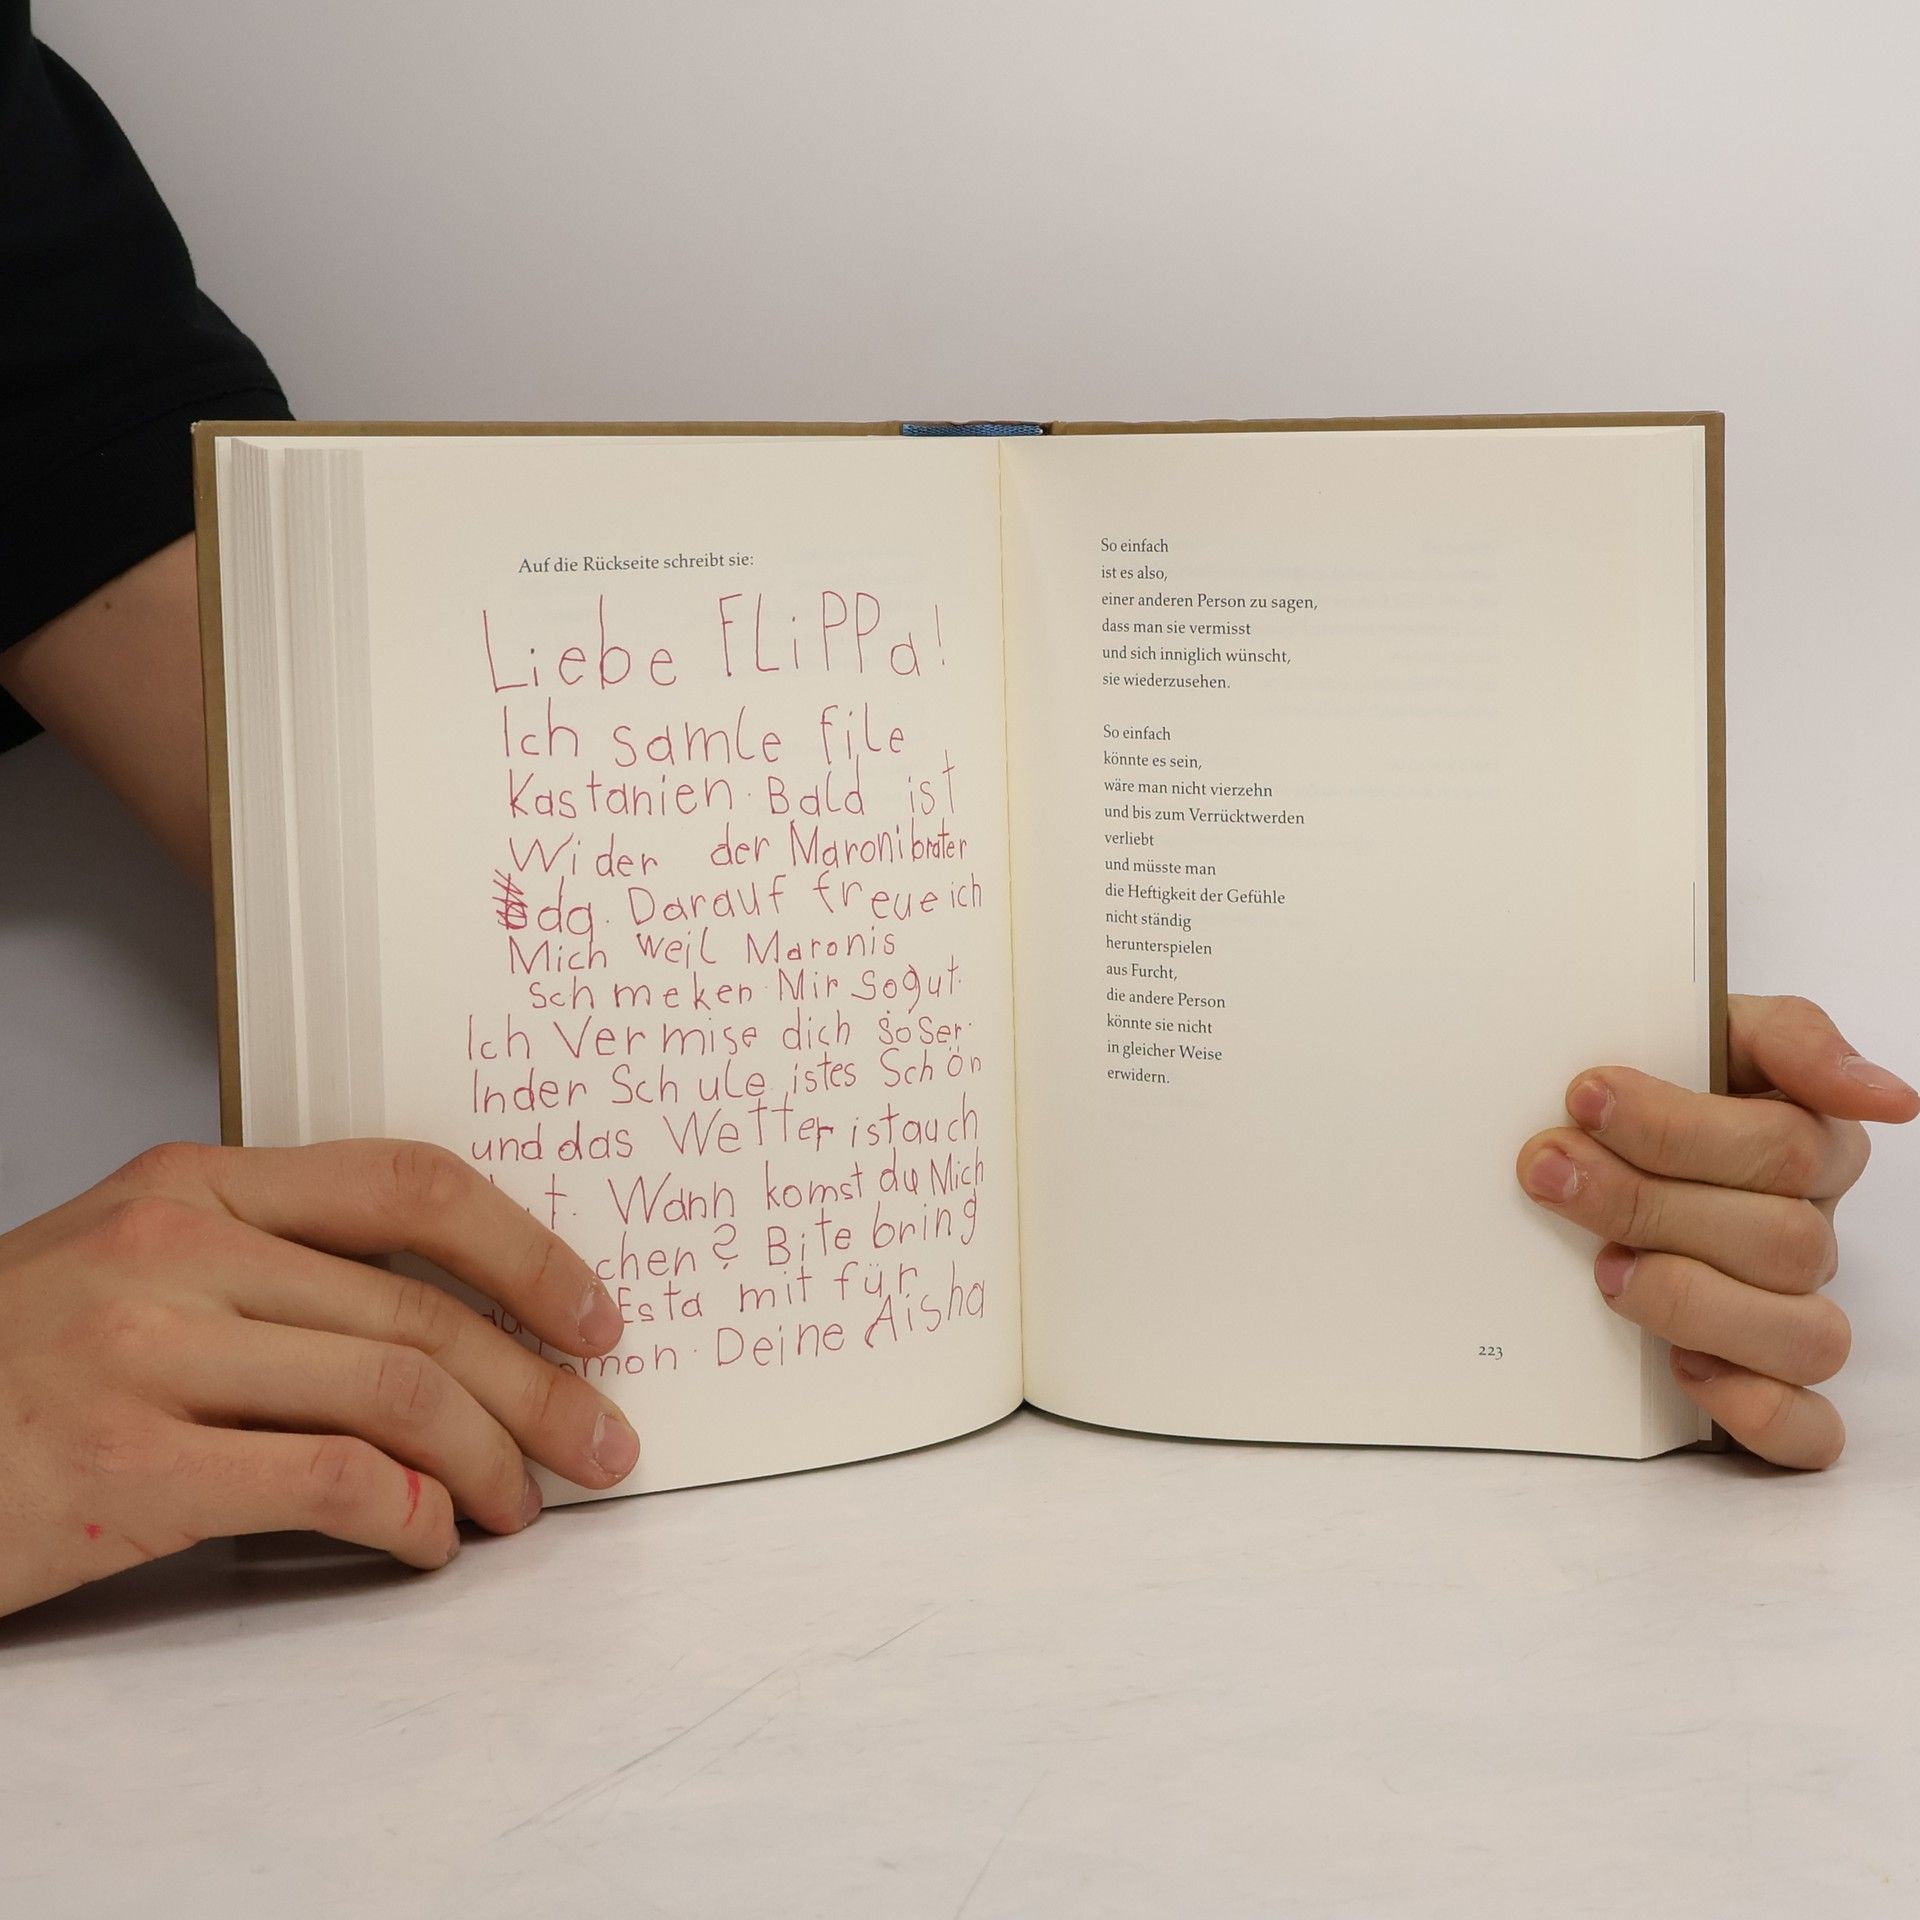 Auf die Rückseite schreibt sie:
Liebe FLiPPa!
Ich samle file
Kastanien. Bald ist
Wider der Maronibrater
da. Darauf freue ich
Mich weil Maronis
schmeken Mir so gut.
Ich Vermise dich so ser.
In der Schule ist es Schön
und das Wetter ist auch
Wann komst du Mich
Bite bring
Esta mit für
Deine Aisha
So einfach
ist es also,
einer anderen Person zu sagen,
dass man sie vermisst
und sich inniglich wünscht,
sie wiederzusehen.
So einfach
könnte es sein,
wäre man nicht vierzehn
und bis zum Verrücktwerden
verliebt
und müsste man
die Heftigkeit der Gefühle
nicht ständig
herunterspielen
aus Furcht,
die andere Person
könnte sie nicht
in gleicher Weise
erwidern.
223